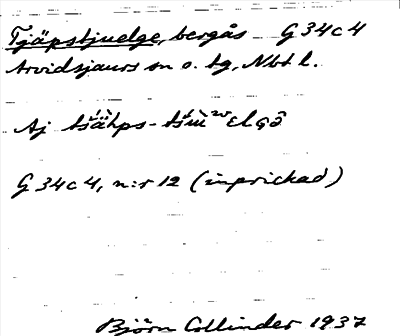 Tjäpstjuelge, bergås G 34 c 4
Arvidsjaurs sn o. tg, Nbt l.
Aj
G 34 c 4, n:r 12 (inprickad)
Björn Collinder 1937